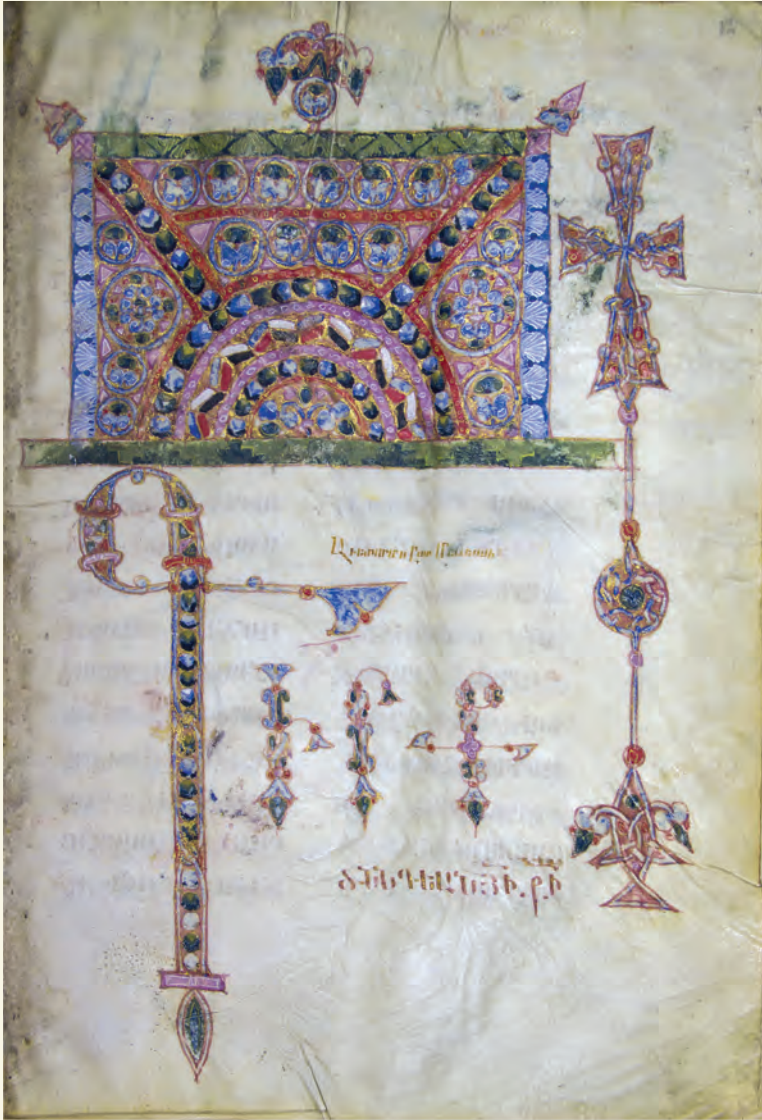 Աւետարան ըստ Մատթէոսի
ԳԻՐՔ
ԾՆՆԴԵԱՆ ՅԻ. ՔԻ